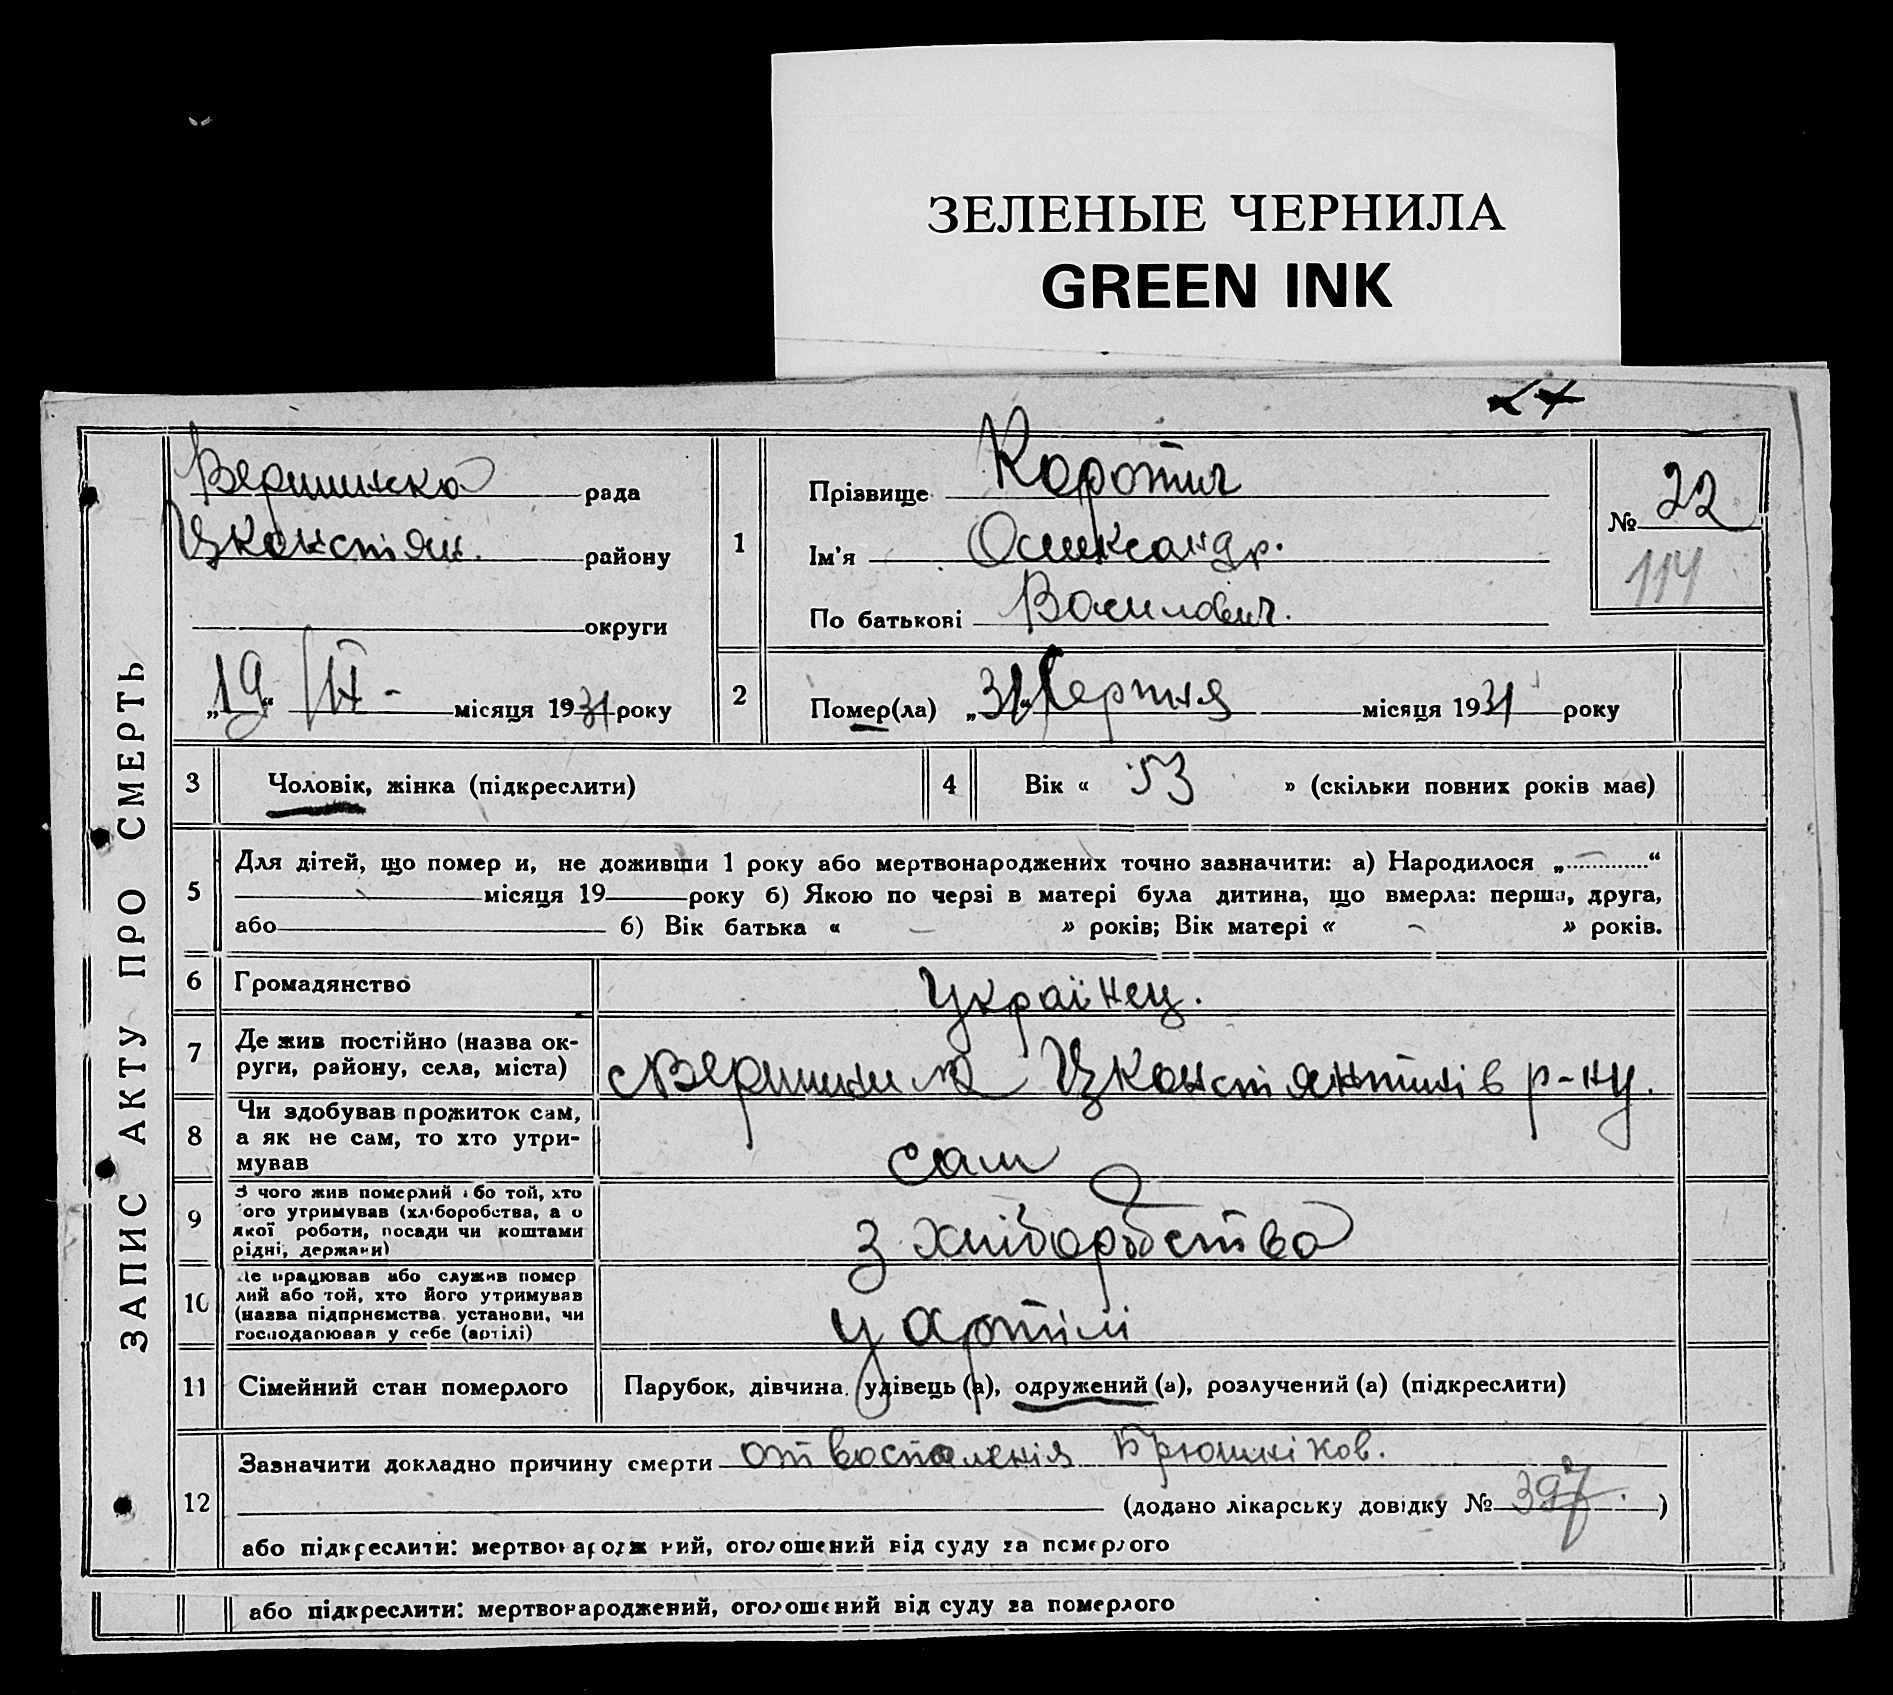 ЗЕЛЕНЫЕ ЧЕРНИЛА
GREEN INK
27
ЗАПИС АКТУ ПРО СМЕРТЬ
Вершинська рада
Цконстян. району
округи
„19“ IX - місяця 1931 року
1
Прізвище Коротич
Ім'я Олександр.
По батькові Василович.
№ 22
114
2
Помер(ла) „31“ Серпня місяця 1931 року
3 Чоловік, жінка (підкреслити)
4 Вік « 53 » (скільки повних років має)
5 Для дітей, що помер и, не доживши 1 року або мертвонароджених точно зазначити: а) Народилося „ “
місяця 19 року б) Якою по черзі в матері була дитина, що вмерла: перша, друга,
або б) Вік батька « – » років; Вік матері « – » років.
6 Громадянство Українец.
7 Де жив постійно (назва ок-
руги, району, села, міста) Цконстянтинів р-ну.
8 Чи здобував прожиток сам,
а як не сам, то хто утри-
мував сам
9 З чого жив померлий або той, хто
його утримував (хліборобства, а о
якої роботи, посади чи коштами
рідні, держави) з хліборобства
10 Де працював або служив помер
лий або той, хто його утримував
(назва підприємства, установи, чи
господарював у себе (артілі) у артілі
11 Сімейний стан померлого Парубок, дівчина, удівець (а), одружений (а), розлучений (а) (підкреслити)
12 Зазначити докладно причину смерти от воспаленія Брюшніков.
(додано лікарську довідку № 397. )
або підкреслити: мертвонароджений, оголошений від суду за померлого
або підкреслити: мертвонароджений, оголошений від суду за померлого